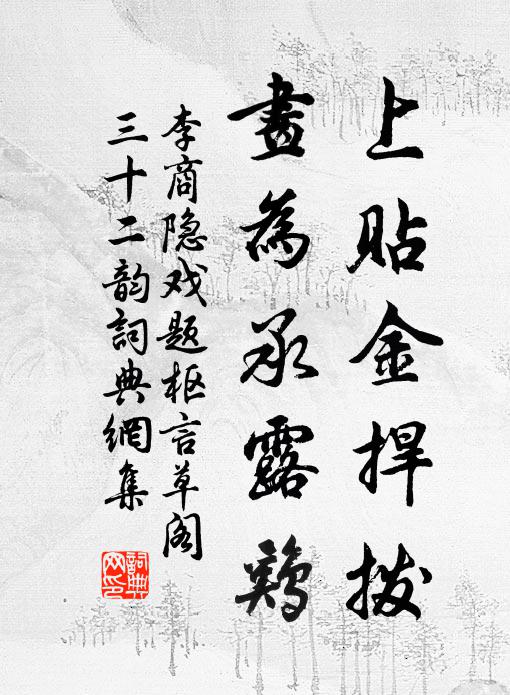 上貼金捍撥
畫為承露鷄
李商隐戏题枢言草阁
三十二韵詞典網集
詞典
网印